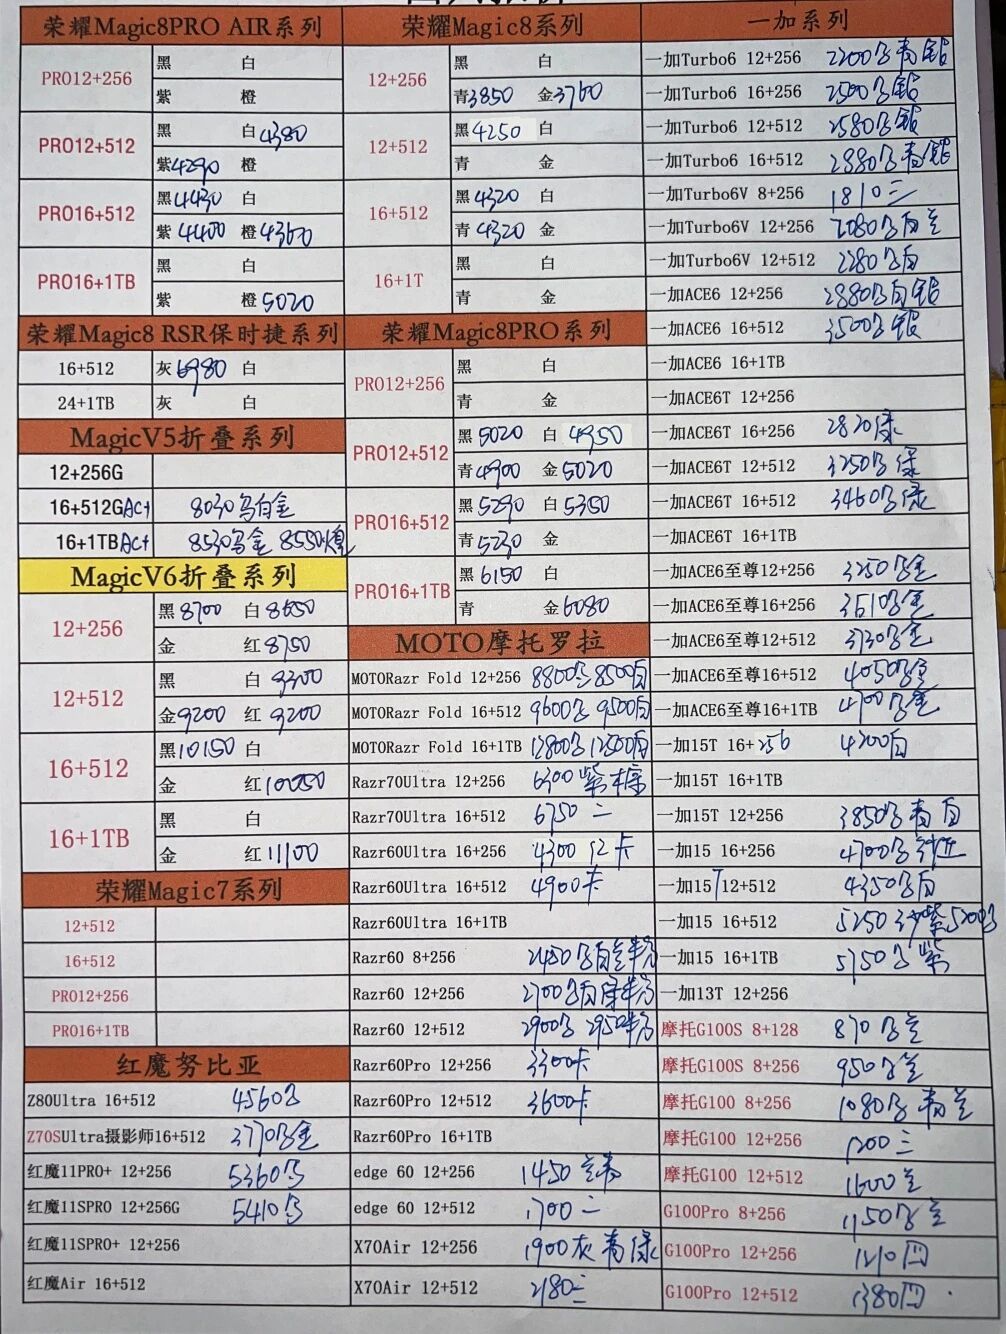 荣耀Magic8PRO AIR系列
PRO12+256 黑 白
紫 橙
PRO12+512 黑 白4380
紫4290 橙
PRO16+512 黑4430 白
紫4400 橙4360
PRO16+1TB 黑 白
紫 橙5020
荣耀Magic8 RSR保时捷系列
16+512 灰6980 白
24+1TB 灰 白
MagicV5折叠系列
12+256G
16+512GAct 8030乌白金
16+1TBAct 8530乌金 8550
MagicV6折叠系列
12+256 黑8700 白8650
金 红8750
12+512 黑 白9300
金9200 红9200
16+512 黑10150 白
金 红10050
16+1TB 黑 白
金 红11100
荣耀Magic7系列
12+512
16+512
PRO12+256
PRO16+1TB
红魔努比亚
Z80Ultra 16+512 4560乌
Z70SUltra摄影师16+512 3770乌金
红魔11PRO+ 12+256 5360乌
红魔11SPRO 12+256G 5410乌
红魔11SPRO+ 12+256
红魔Air 16+512
荣耀Magic8系列
12+256 黑 白
青3850 金3760
12+512 黑4250 白
青 金
16+512 黑4320 白
青4320 金
16+1T 黑 白
青 金
荣耀Magic8PRO系列
PRO12+256 黑 白
青 金
PRO12+512 黑5020 白4950
青4900 金5020
PRO16+512 黑5290 白5350
青5230 金
PRO16+1TB 黑6150 白
青 金6080
MOTO摩托罗拉
MOTORazr Fold 12+256 8800乌 8500白
MOTORazr Fold 16+512 9600乌 9500白
MOTORazr Fold 16+1TB 12800乌 12500白
Razr70Ultra 12+256 6300紫棕
Razr70Ultra 16+512 6750二
Razr60Ultra 16+256 4300 卡
Razr60Ultra 16+512 4900卡
Razr60Ultra 16+1TB
Razr60 8+256 2450乌白兰
Razr60 12+256 2700乌白绿
Razr60 12+512 2900乌 2950
Razr60Pro 12+256 3300卡
Razr60Pro 12+512 3600卡
Razr60Pro 16+1TB
edge 60 12+256 1450兰青
edge 60 12+512 1700二
X70Air 12+256 1900灰青绿
X70Air 12+512 2180三
一加系列
一加Turbo6 12+256 2200乌青银
一加Turbo6 16+256 2500乌银
一加Turbo6 12+512 2580乌银
一加Turbo6 16+512 2880乌青银
一加Turbo6V 8+256 1810三
一加Turbo6V 12+256 2080乌白兰
一加Turbo6V 12+512 2280乌白
一加ACE6 12+256 2880乌白银
一加ACE6 16+512 3500乌银
一加ACE6 16+1TB
一加ACE6T 12+256
一加ACE6T 16+256 2820绿
一加ACE6T 12+512 3250乌绿
一加ACE6T 16+512 3460乌绿
一加ACE6T 16+1TB
一加ACE6至尊12+256 3250乌金
一加ACE6至尊16+256 3510乌金
一加ACE6至尊12+512 3730乌金
一加ACE6至尊16+512 4050乌金
一加ACE6至尊16+1TB 4700乌金
一加15T 16+256 4200白
一加15T 16+1TB
一加15T 12+256 3850乌青白
一加15 16+256 4700乌
一加15T12+512 4350乌白
一加15 16+512 5250 紫5200乌
一加15 16+1TB 5750乌紫
一加13T 12+256
摩托G100S 8+128 870乌兰
摩托G100S 8+256 950乌兰
摩托G100 8+256 1080乌青兰
摩托G100 12+256 1200三
摩托G100 12+512 1600兰
G100Pro 8+256 1150乌兰
G100Pro 12+256 1210四
G100Pro 12+512 1380四